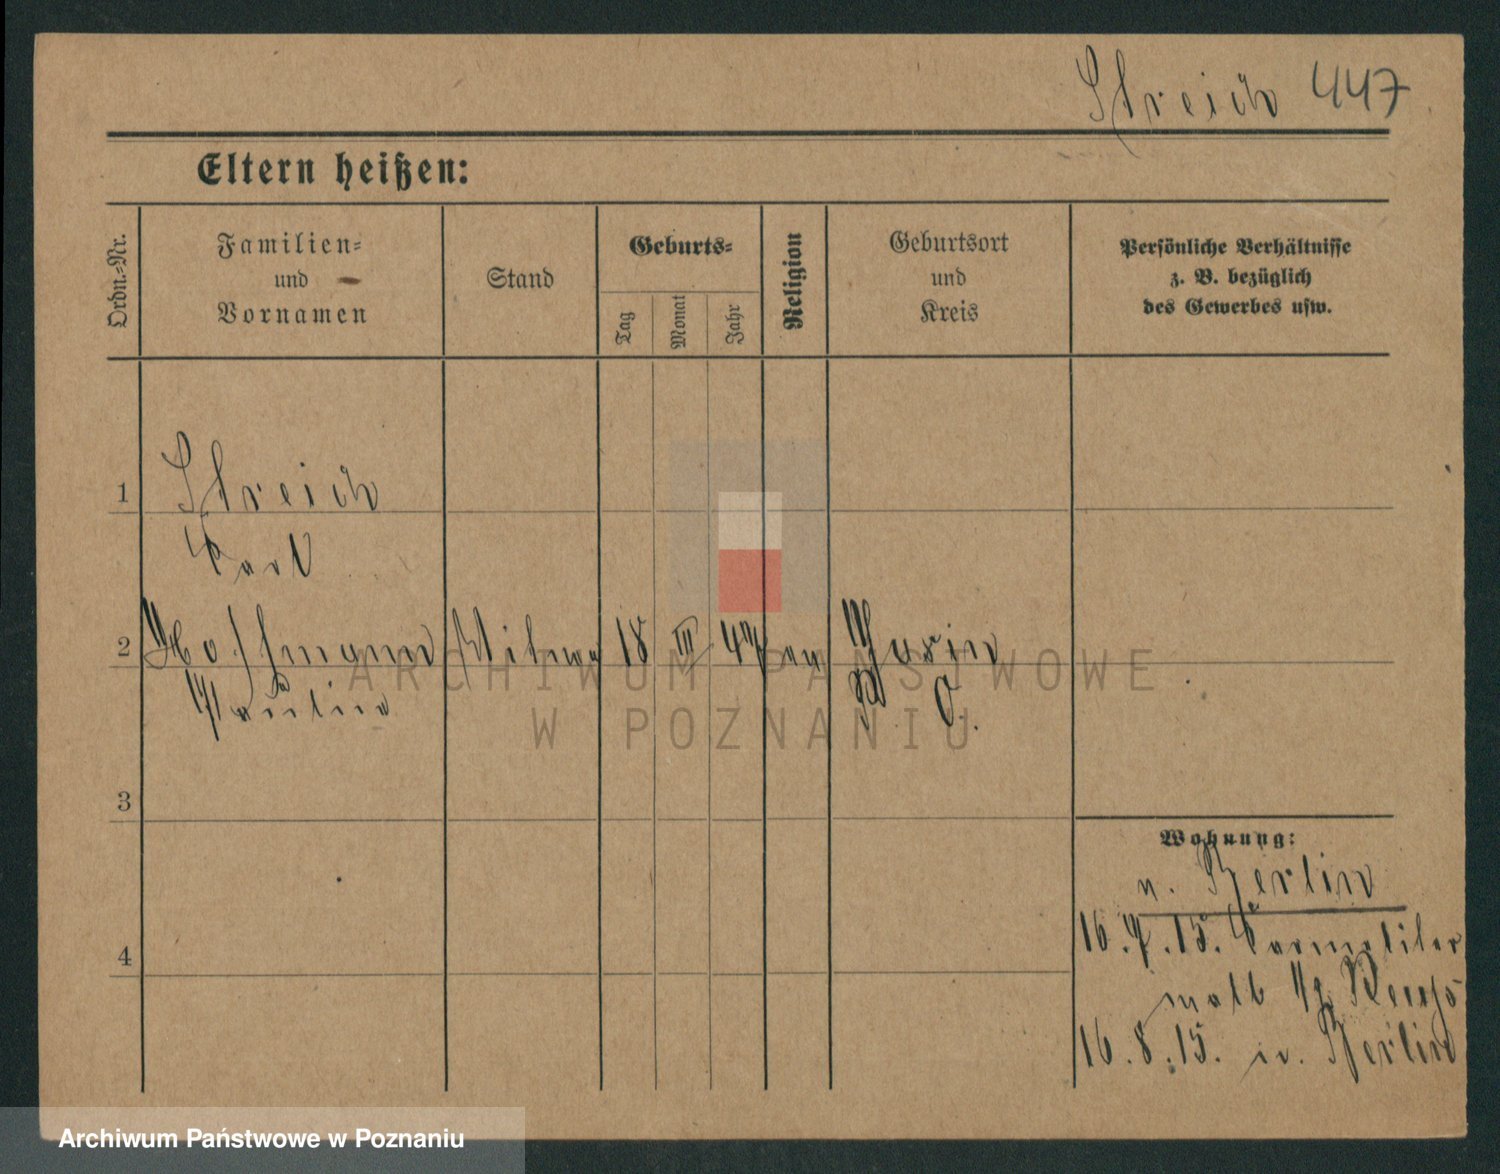 Streich 447
Eltern heißen:
Ordn.=Nr.
Familien=
und
Vornamen
Stand
Geburts=
Tag
Monat
Jahr
Religion
Geburtsort
und
Kreis
Persönliche Verhältnisse
z. B. bezüglich
des Gewerbes usw.
1
Streich
Carl
2
Hoffmann Witwe 18 III 47 ev
Paulin
3
4
Wohnung:
n. Berlin
16.4.15.
16.8.15. n. Berlin
ARCHIWUM PAŃSTWOWE
W POZNANIU
Archiwum Państwowe w Poznaniu